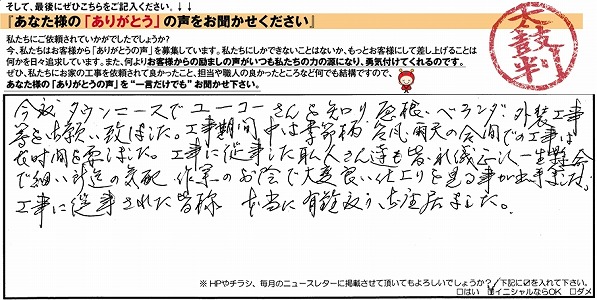 そして、最後にぜひこちらをご記入ください。↓↓
『あなた様の「ありがとう」の声をお聞かせください』
私たちにご依頼されていかがでしたでしょうか?
今、私たちはお客様から「ありがとうの声」を募集しています。私たちにしかできないことはないか、もっとお客様にして差し上げることは
何かを日々追求しています。また、何よりお客様からの励ましの声がいつも私たちの力の源になり、勇気付けてくれるのです。
ぜひ、私たちにお家の工事を依頼されて良かったこと、担当や職人の良かったところなど何でも結構ですので、
あなた様の「ありがとうの声」を"一言だけでも"お聞かせ下さい。
太鼓判
今般 タウンニュースでユーコーさんを知り 屋根、ベランダ、外装工事
等をお願い致しました。工事期間中は季節柄 台風、雨天の合間での工事は
長時間を要しました。工事に従事した職人さん達も皆礼儀正しく一生懸命
で細い所迄の気配 作業のお陰で大変良い仕上りを見る事が出来ました。
工事に従事された皆様 本当に有難うございました。
※HPやチラシ、毎月のニュースレターに掲載させて頂いてもよろしいでしょうか?/下記に☑を入れて下さい。
□はい ☑イニシャルならOK □ダメ